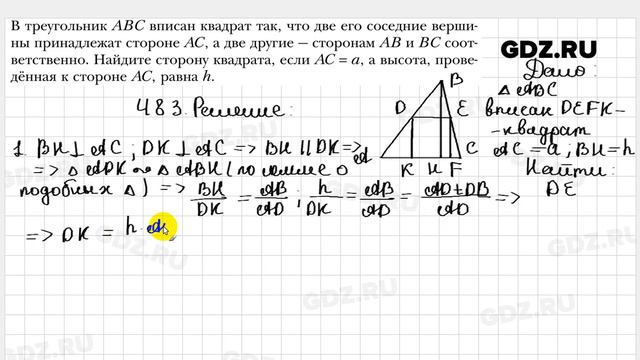 В треугольник ABC вписан квадрат так, что две его соседние верши-
ны принадлежат стороне AC, а две другие — сторонам AB и BC соот-
ветственно. Найдите сторону квадрата, если AC = a, а высота, прове-
дённая к стороне AC, равна h.
GDZ.RU
483. Решение:
Дано:
△ ABC
вписан DEFK-
-квадрат
AC = a; BH = h
Найти:
DE
B
D E
A K H F C
1. BH ⊥ AC; DK ⊥ AC => BH || DK =>
=> △ ADK ∾ △ ABH (по лемме о
подобных △) => BH/DK = AB/AD; h/DK = AB/AD = AD+DB/AD =>
=> DK = h·
GDZ.RU
GDZ.RU
GDZ.RU
GDZ.RU